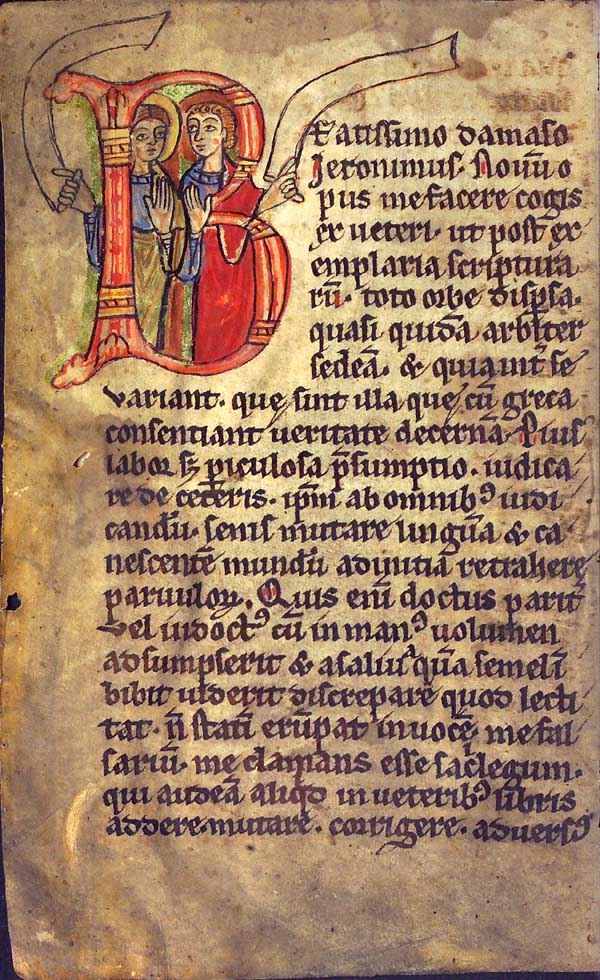 Beatissimo damaso
Jeronimus. Novū o
pus me facere cogis
ex veteri. ut post ex
emplaria scriptura
rū. toto orbe dispsa.
quasi quidā arbiter
sedeā. & quia int̄ se
variant. que sint illa que cū greca
consentiant veritate decernā. Pius
labor sꝫ piculosa p̄sumptio. iudica
re de ceteris. ip̄m ab omnibꝰ iudi
candū. senis mutare linguā & ca
nescentē mundū ad initiā retrahere
parvuloꝝ. Quis eni doctus parit̄
vel indoctꝰ cū in manꝰ volumen
adsumpserit & a saliva quā semel ī
bibit viderit discrepare quod lecti
tat. n̄ statī erūpat in vocē. me fal
sariū. me clamans esse sac̄legum.
qui audeā aliqd in veteribꝰ libris
addere. mutare. corrigere. adversꝰ